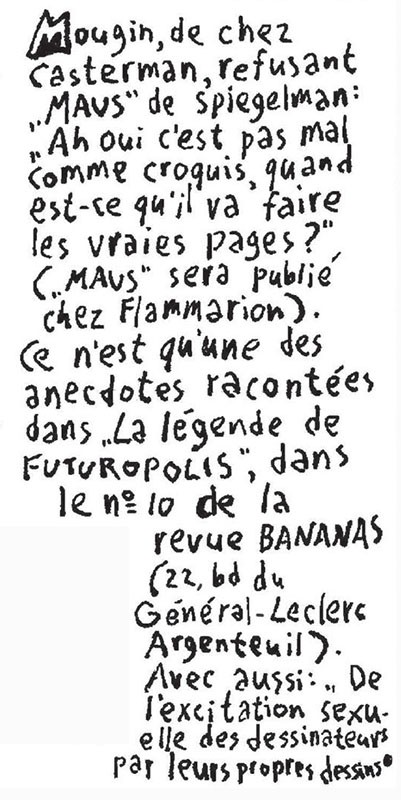 Mougin, de chez
Casterman, refusant
„MAUS" de Spiegelman:
„Ah oui c'est pas mal
comme croquis, quand
est-ce qu'il va faire
les vraies pages?"
(„MAUS" sera publié
chez Flammarion).
Ce n'est qu'une des
anecdotes racontées
dans „La légende de
FUTUROPOLIS", dans
le nº 10 de la
revue BANANAS
(22, bd du
Général-Leclerc
Argenteuil).
Avec aussi: „De
l'excitation sexu-
elle des dessinateurs
par leurs propres dessins"